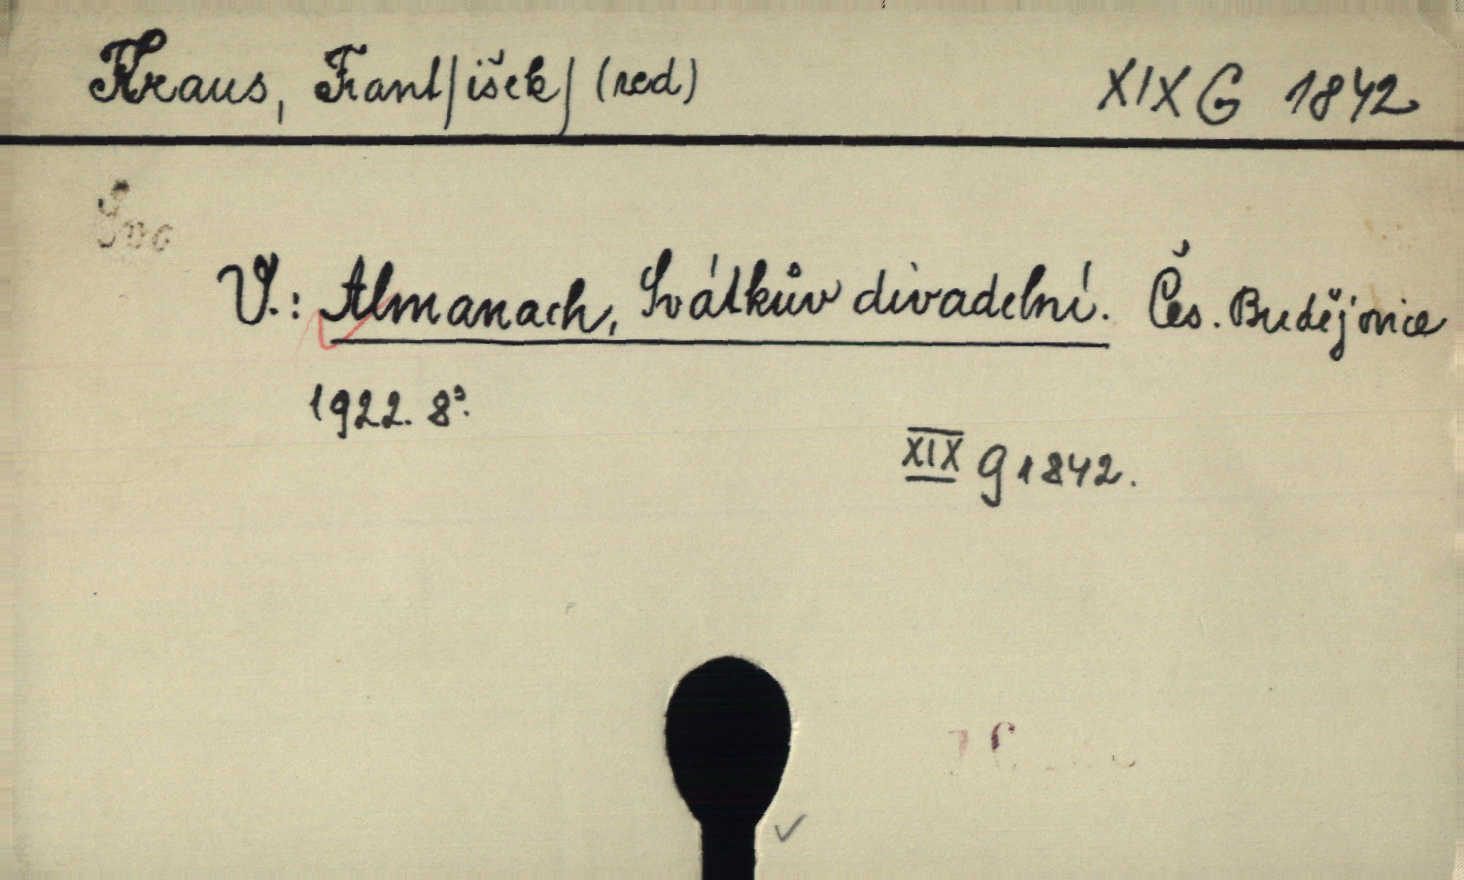 Kraus, Frant/išek/ (red) XIX G 1842
V.: Almanach, Svátkův divadelní. Čes. Budějovice
1922. 8°.
XIX G 1842.